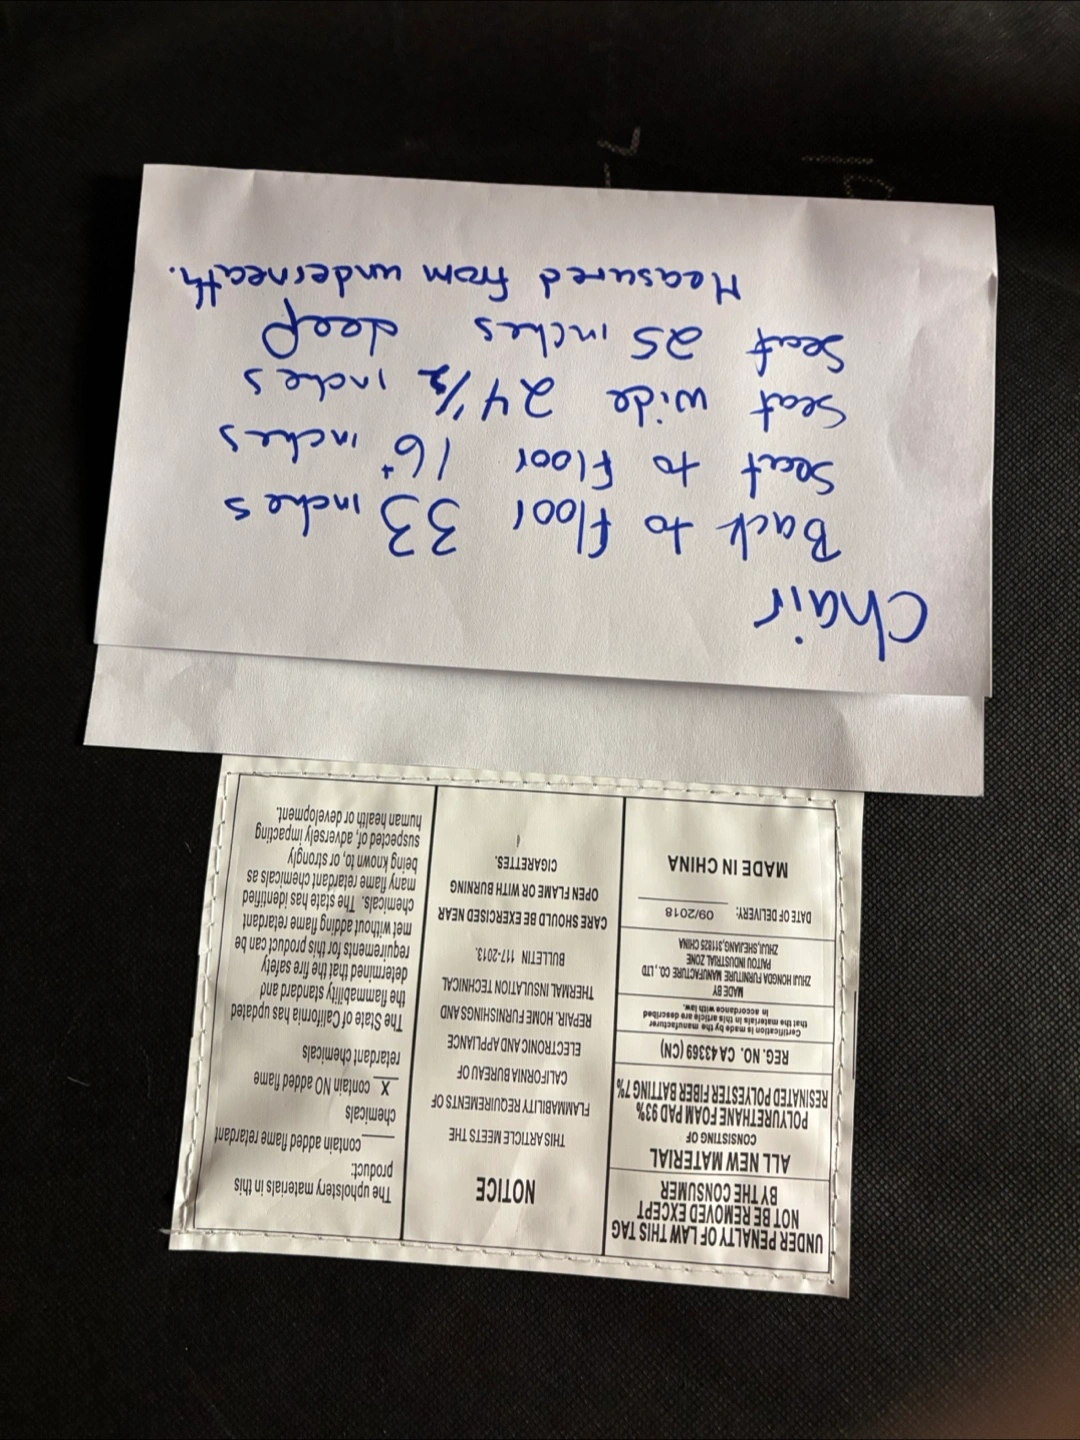 Chair
Back to floor 33 inches
Seat to floor 16+ inches
Seat wide 24 1/2 inches
Seat 25 inches deep
Measured from underneath.
UNDER PENALTY OF LAW THIS TAG
NOT BE REMOVED EXCEPT
BY THE CONSUMER
ALL NEW MATERIAL
CONSISTING OF
POLYURETHANE FOAM PAD 93%
RESINATED POLYESTER FIBER BATTING 7%
REG. NO. CA 43369 (CN)
Certification is made by the manufacturer
that the materials in this article are described
in accordance with law.
MADE BY
ZHUJI HONGDA FURNITURE MANUFACTURE CO., LTD
PAITOU INDUSTRIAL ZONE
ZHUJI, SHEJIANG, 311825 CHINA
DATE OF DELIVERY: 09/2018
MADE IN CHINA
NOTICE
THIS ARTICLE MEETS THE
FLAMMABILITY REQUIREMENTS OF
CALIFORNIA BUREAU OF
ELECTRONIC AND APPLIANCE
REPAIR, HOME FURNISHINGS AND
THERMAL INSULATION TECHNICAL
BULLETIN 117-2013.
CARE SHOULD BE EXERCISED NEAR
OPEN FLAME OR WITH BURNING
CIGARETTES.
The upholstery materials in this
product:
____contain added flame retardant
chemicals
X contain NO added flame
retardant chemicals
The State of California has updated
the flammability standard and
determined that the fire safety
requirements for this product can be
met without adding flame retardant
chemicals. The state has identified
many flame retardant chemicals as
being known to, or strongly
suspected of, adversely impacting
human health or development.